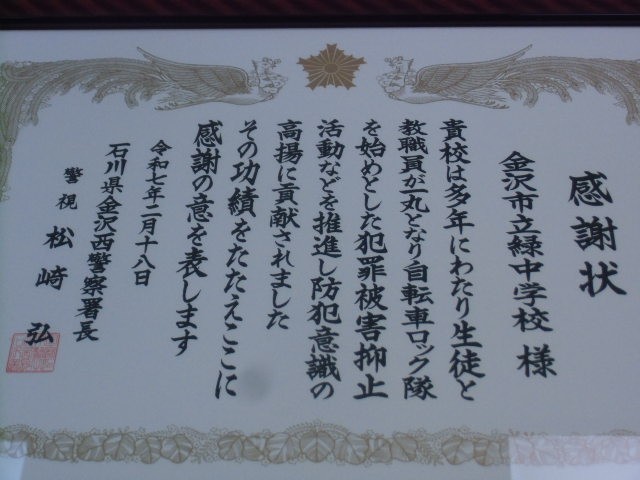 感謝状
金沢市立緑中学校 様
貴校は多年にわたり生徒と
教職員が一丸となり自転車ロック隊
を始めとした犯罪被害抑止
活動などを推進し防犯意識の
高揚に貢献されました
その功績をたたえここに
感謝の意を表します
令和七年二月十八日
石川県金沢西警察署長
警視 松崎 弘